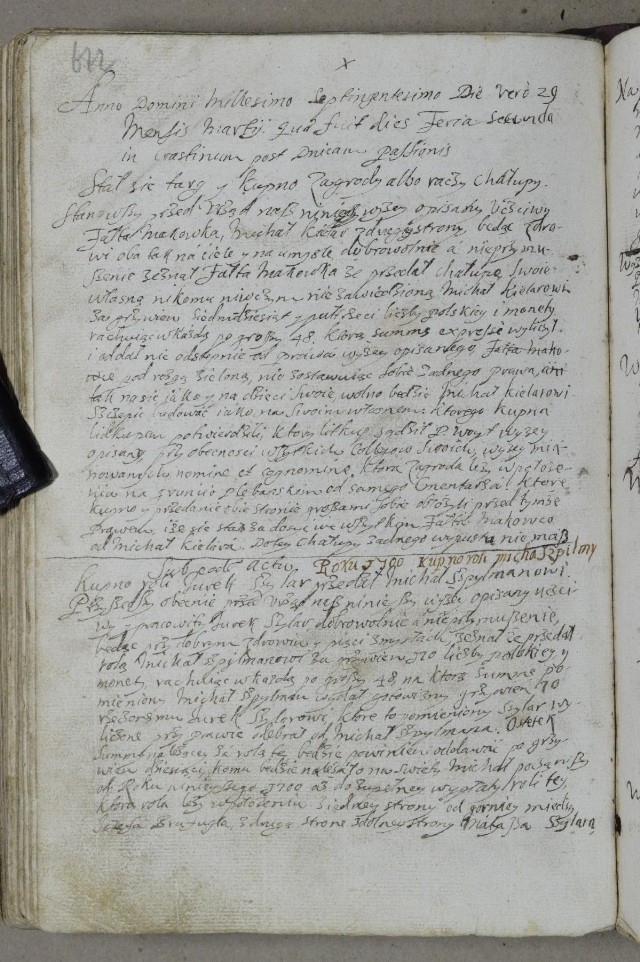 672
x
Anno Domini Millesimo Septingentesimo Die verò 29
Mensis Martij. qua fuit dies Feria Secunda
in crastinum post Dnicam passionis
Stał sie targ y kupno Zagrody albo raczy Chałupy.
Stanowszy przed Urząd nasz niniejszy wyzey opisany Uczciwy
Jatta Makowka, Michał Kielar z drugiey strony bedąc zdro-
wi oba tak na ciele y na umysle dobrowolnie a nieprzymu-
szenie zeznał Jatta Makowka że przedał chałupę Swoię
własną nikomu niwczym niezawiedzioną Michał Kielarowi
za grzywien Siedmdziesiąt y puł trzeci liczby polskiey i monety
rachuiąc w kazdą po groszy 48. ktorą summę expresse wyliczył
i oddał nie odstempnie od prawa wyzey opisanego, Jatta Mako-
wce pod rozgą zieloną, nie zostawuiąc sobie żadnego prawa, ani
tak na sie jako y na dzieci Swoie, wolno bedzie Michał Kielarowi
Szczepic budować iako na Swoim własnem. ktorego kupna
litkupem potwierdzili, ktory litkup sądził P Woyt wyzey
opisany przy obecnosci wszytkich Collegow Swoich, wyzey mia-
nowanych nomine et cognomine, ktora zagroda leży w położe-
niu na gruncie plebanskim od samego Cmentarza. ktore
kupno y przedanie obie stronie groszami sobie obłożyli przed tymże
Prawem, iże się stało za dosyć we wszytkim Jatta Makowce
od Michał Kielara. Do tey Chałupy żadnego wypustu nie masz
Sub eodē Actu, Roku 1700 Kupno roli Micha Szpilony
Kupno roli Jurek Szylar przedał Michał Szpylmanowi.
Przyszedszy obecnie przed Urząd nasz niniejszy wyżey opisany ucści-
wy y pracowity Jurek Szylar dobrowolnie a nieprzymuszenie,
bedąc przy dobrym zdrowiu y pięci smysłach, zeznał że przedał
rolą Michał Szpilmanowi za grzywien 120 liczby polskiey y
monety, rachuiąc w każdą po groszy 48, na ktorą summę po-
mieniony Michał Szpylman oddał gotowizny grzywien 70
rzeczonemu Jurek Szylorowi, ktore to pomieniony Szylar wy-
liczone przy prawie odebrał od Michał Szpylmana. Ostatek
Summy należącey za rolą tę bedzie powinien oddawać po grzy-
wien dziesiąci komu bedzie należało na Swięty Michał począwszy
od Roku ninieyszego 1700 aż do zupełney wypłaty roli tey
ktora rola leży w położeniu z iedney strony od gorniey miedzy
z drugą stronę zdolney strony Matysza Szylara